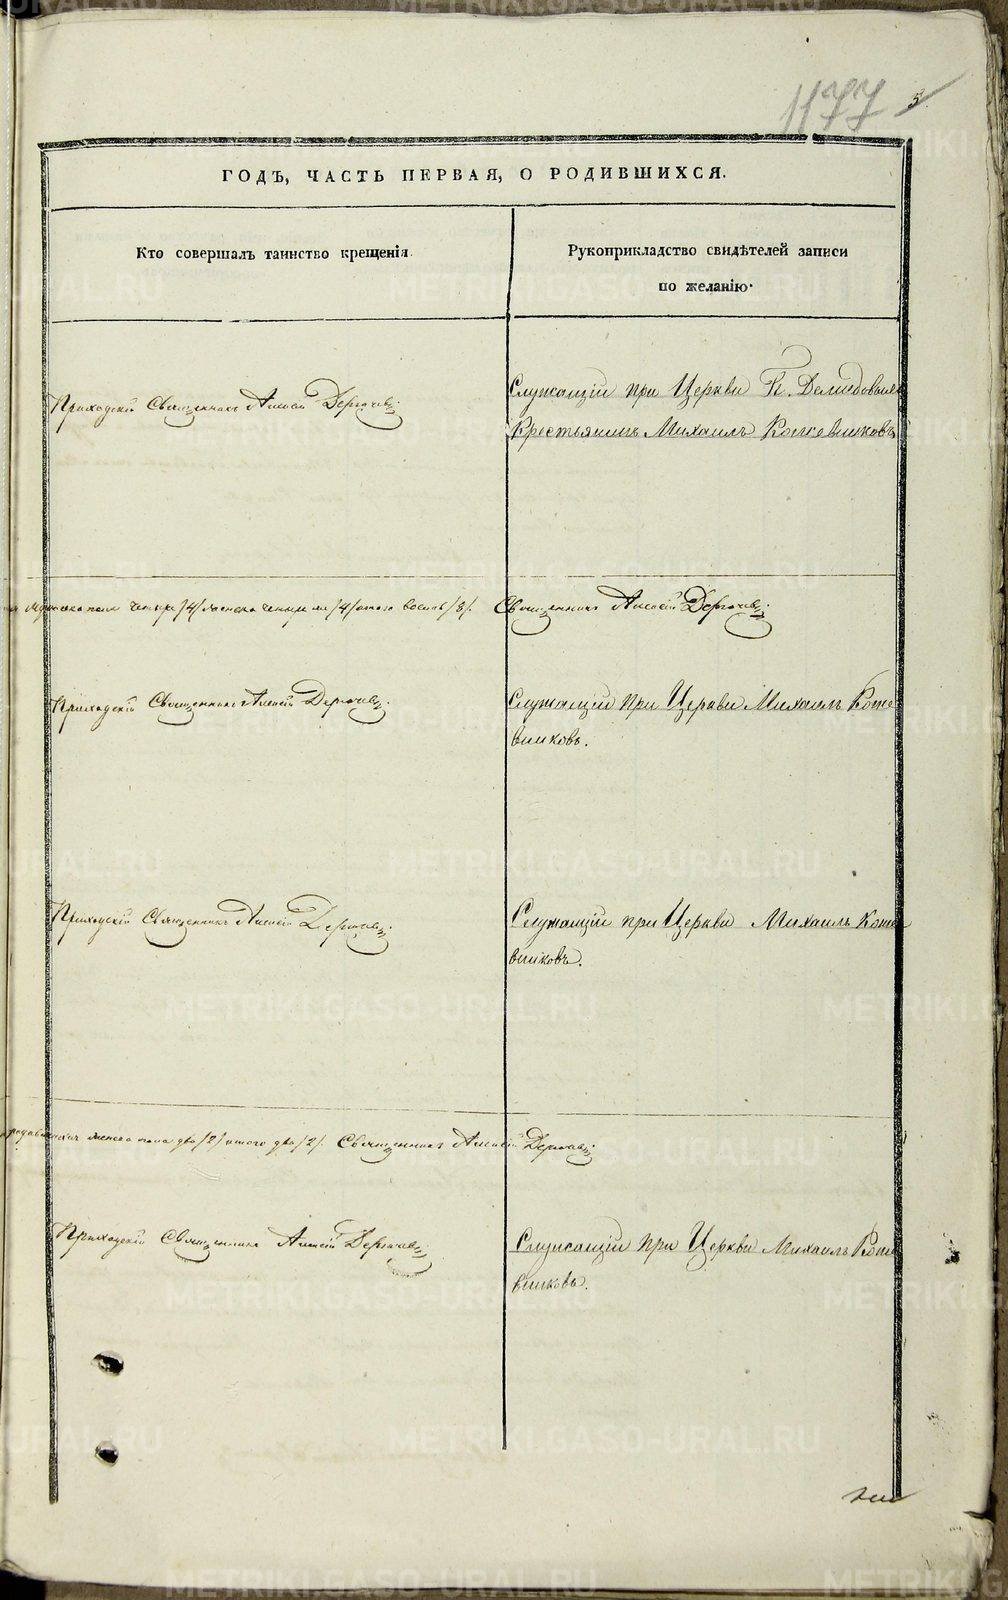 1177 5
ГОДЪ, ЧАСТЬ ПЕРВАЯ, О РОДИВШИХСЯ.
Кто совершалъ таинство крещенія.
Рукоприкладство свидѣтелей записи
по желанію.
Приходскій Священникъ Алексій Дергачевъ.
Служащій при Церкви Г. Демидовыхъ
Крестьянинъ Михаилъ Кожевниковъ
мужеска пола четыре /4/ женска четыре /4/ итого восемь /8/. Священникъ Алексій Дергачевъ.
Приходскій Священникъ Алексій Дергачевъ.
Служащій при Церкви Михаилъ Коже
вниковъ.
Приходскій Священникъ Алексій Дергачевъ.
Служащій при Церкви Михаилъ Коже
вниковъ.
женска пола два /2/ итого два /2/. Священникъ Алексій Дергачевъ.
Приходскій Священникъ Алексій Дергачевъ
Служащій при Церкви Михаилъ Коже
вниковъ.
METRIKI.GASO-URAL.RU